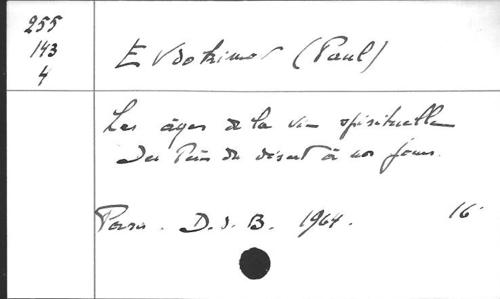 255
143
4
Evdokimov (Paul)
Les âges de la vie spirituelle
Des Pères du désert à nos jours.
Paris. D.d.B. 1964. 16